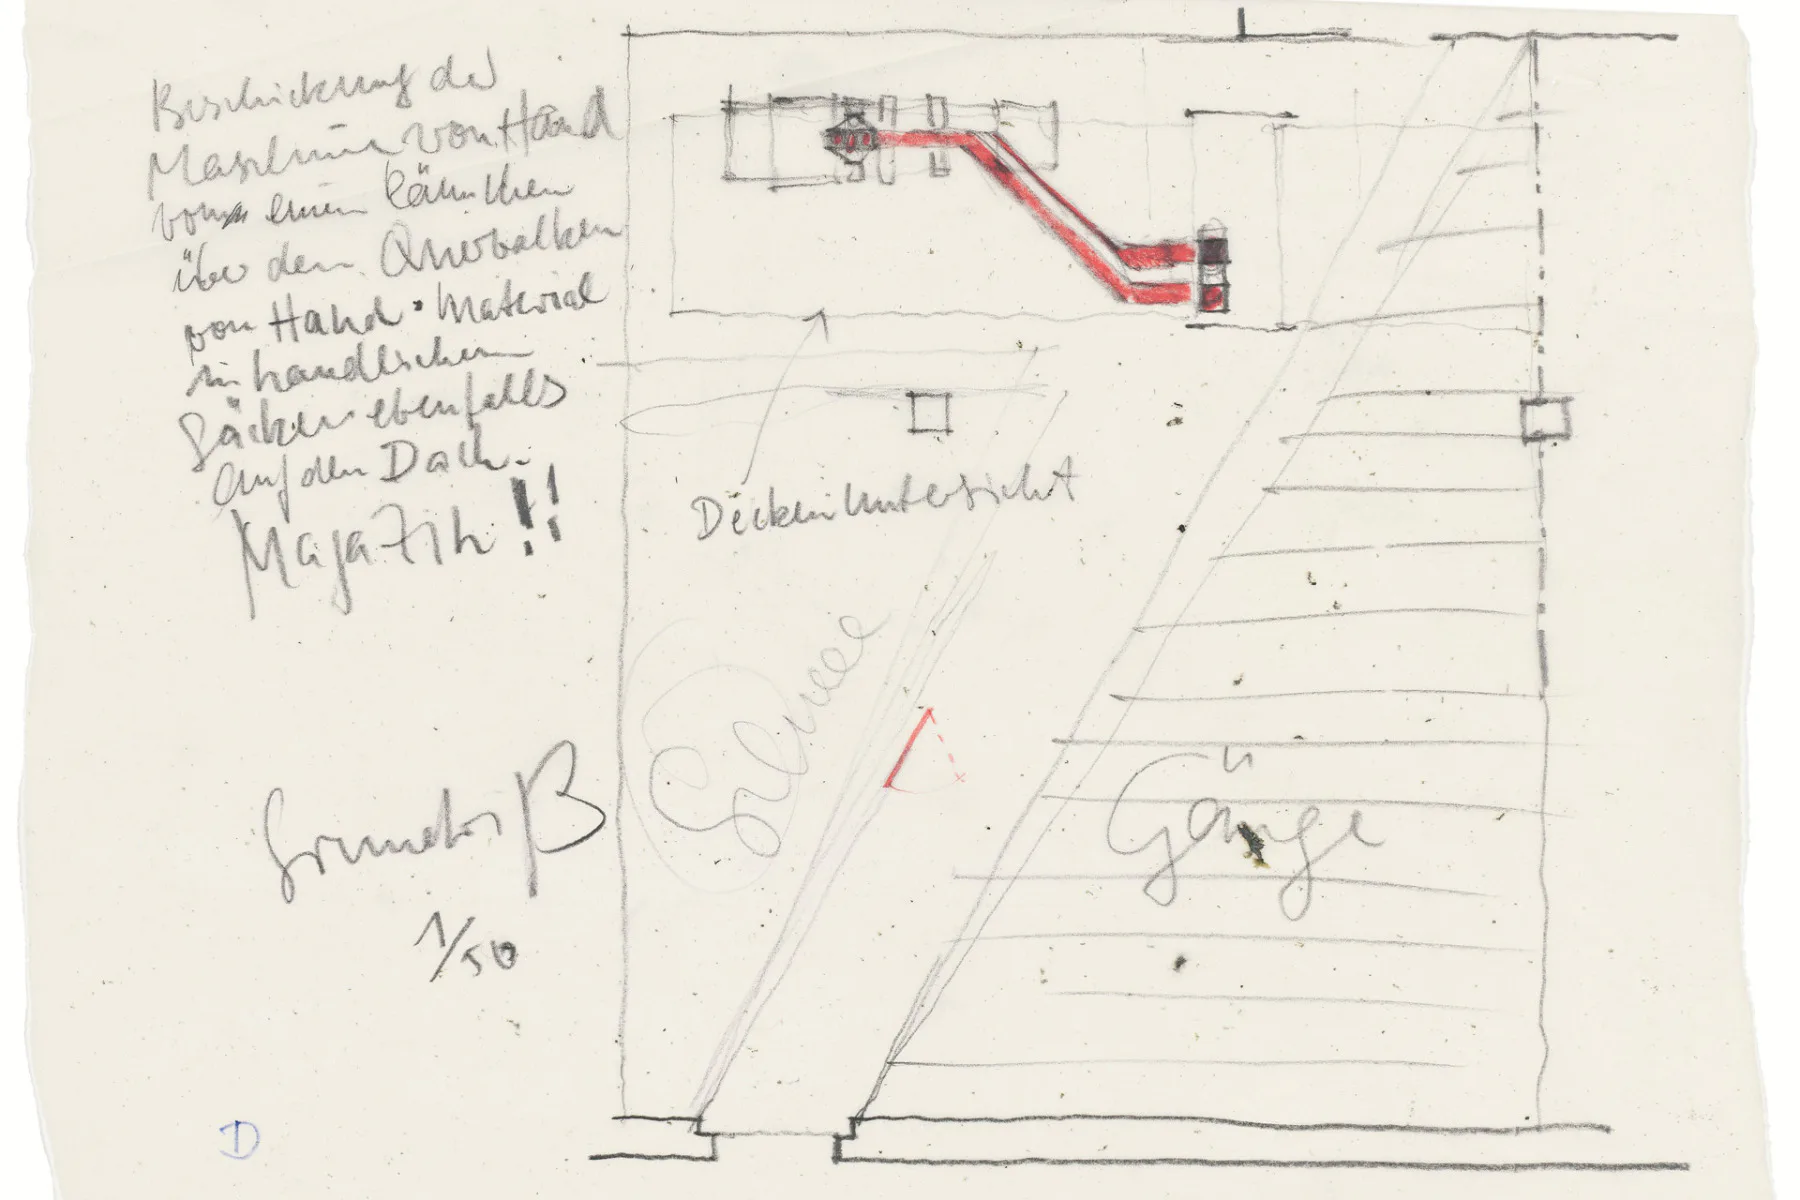 Beschickung der
Maschine von Hand
vom einem Bänkchen
über dem Querbalken
von Hand. Material
in handlichen
Säcken ebenfalls
auf dem Dach.
Magazin!!
Deckenuntersicht
Gänge
Grundriß
1/50
D